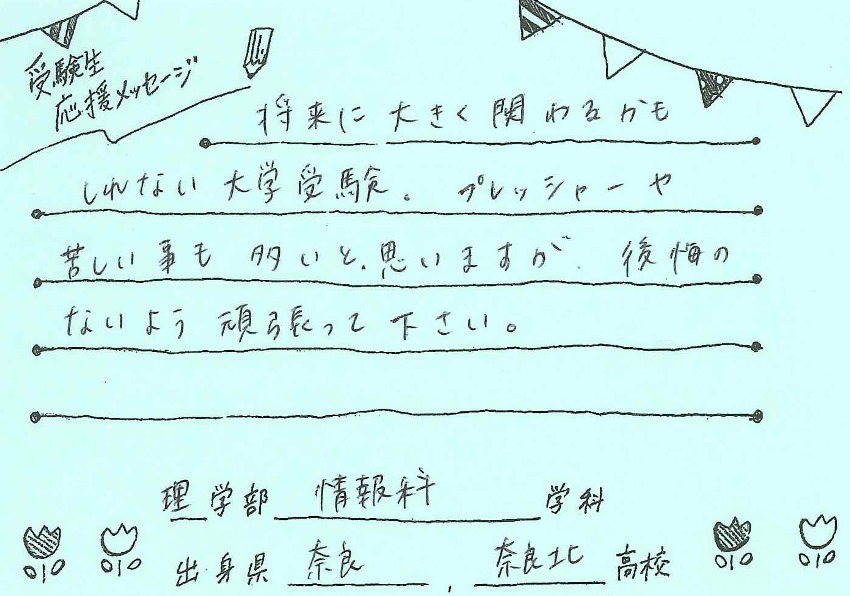 受験生
応援メッセージ
将来に大きく関わるかも
しれない大学受験。プレッシャーや
苦しい事も多いと思いますが、後悔の
ないよう頑張って下さい。
理学部 情報科学科
出身県 奈良, 奈良北高校